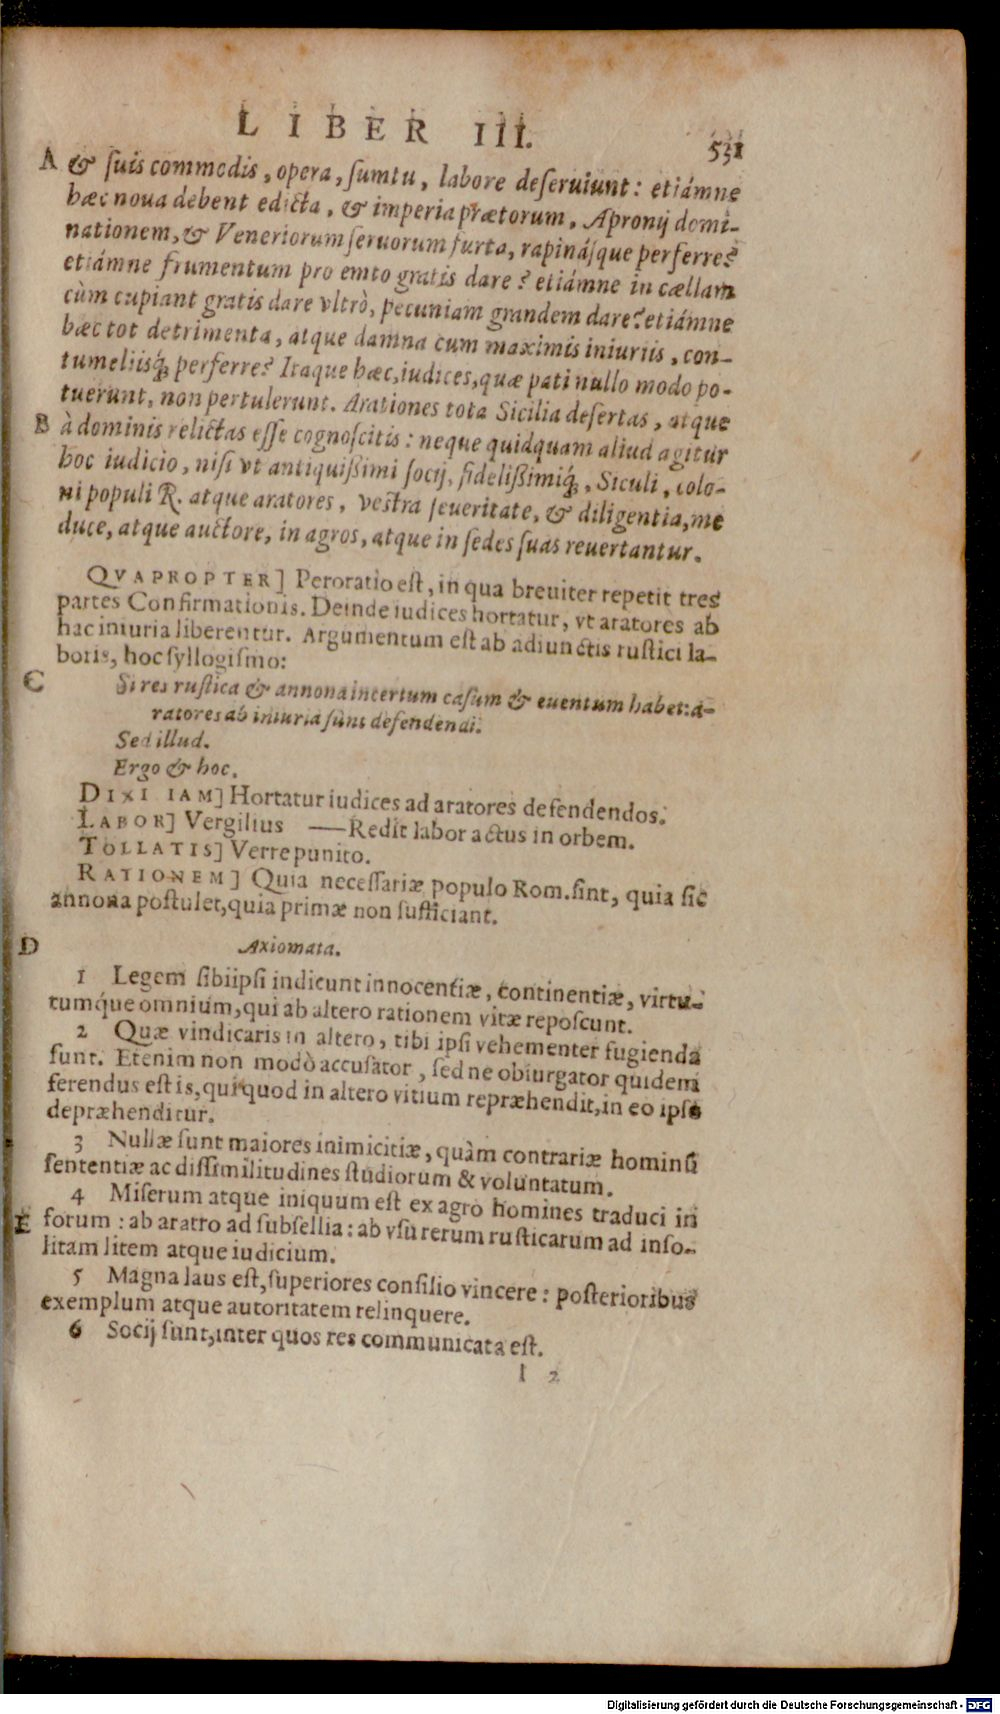 LIBER III. 531
A & ſuis commodis, opera, ſumtu, labore deſeruiunt: etiámne
hæc noua debent edicta, & imperia prætorum, Apronij domi-
nationem, & Veneriorum ſeruorum furta, rapináſque perferre?
etiámne frumentum pro emto gratis dare? etiámne in cællam
cùm cupiant gratis dare vltrò, pecuniam grandem dare? etiámne
hæc tot detrimenta, atque damna cum maximis iniuriis, con-
tumeliisq́; perferre? Itaque hæc, iudices, quæ pati nullo modo po-
tuerunt, non pertulerunt. Arationes tota Sicilia deſertas, atque
B à dominis relictas eſſe cognoſcitis: neque quidquam aliud agitur
hoc iudicio, niſi vt antiquißimi ſocij, fidelißimiq́;, Siculi, colo-
ni populi R. atque aratores, veſtra ſeueritate, & diligentia, me
duce, atque auctore, in agros, atque in ſedes ſuas reuertantur.
QVAPROPTER] Peroratio eſt, in qua breuiter repetit tres
partes Confirmationis. Deinde iudices hortatur, vt aratores ab
hac iniuria liberentur. Argumentum eſt ab adiunctis ruſtici la-
boris, hoc ſyllogiſmo:
C Si res ruſtica & annona incertum caſum & euentum habet: a-
ratores ab iniuria ſunt defendendi.
Sed illud.
Ergo & hoc.
DIXI IAM] Hortatur iudices ad aratores defendendos.
LABOR] Vergilius —Redit labor actus in orbem.
TOLLATIS] Verre punito.
RATIONEM] Quia neceſſariæ populo Rom. ſint, quia ſic
annona poſtulet, quia primæ non ſufficiant.
D Axiomata.
1 Legem ſibiipſi indicunt innocentiæ, continentiæ, virtu-
tumq́ue omnium, qui ab altero rationem vitæ repoſcunt.
2 Quæ vindicaris in altero, tibi ipſi vehementer fugienda
ſunt. Etenim non modò accuſator, ſed ne obiurgator quidem
ferendus eſt is, qui quod in altero vitium repræhendit, in eo ipſo
depræhenditur.
3 Nullæ ſunt maiores inimicitiæ, quàm contrariæ hominũ
ſententiæ ac diſſimilitudines ſtudiorum & voluntatum.
4 Miſerum atque iniquum eſt ex agro homines traduci in
E forum: ab aratro ad ſubſellia: ab vſu rerum ruſticarum ad inſo-
litam litem atque iudicium.
5 Magna laus eſt, ſuperiores conſilio vincere: poſterioribus
exemplum atque autoritatem relinquere.
6 Socij ſunt, inter quos res communicata eſt.
l 2
Digitalisierung gefördert durch die Deutsche Forschungsgemeinschaft - DFG